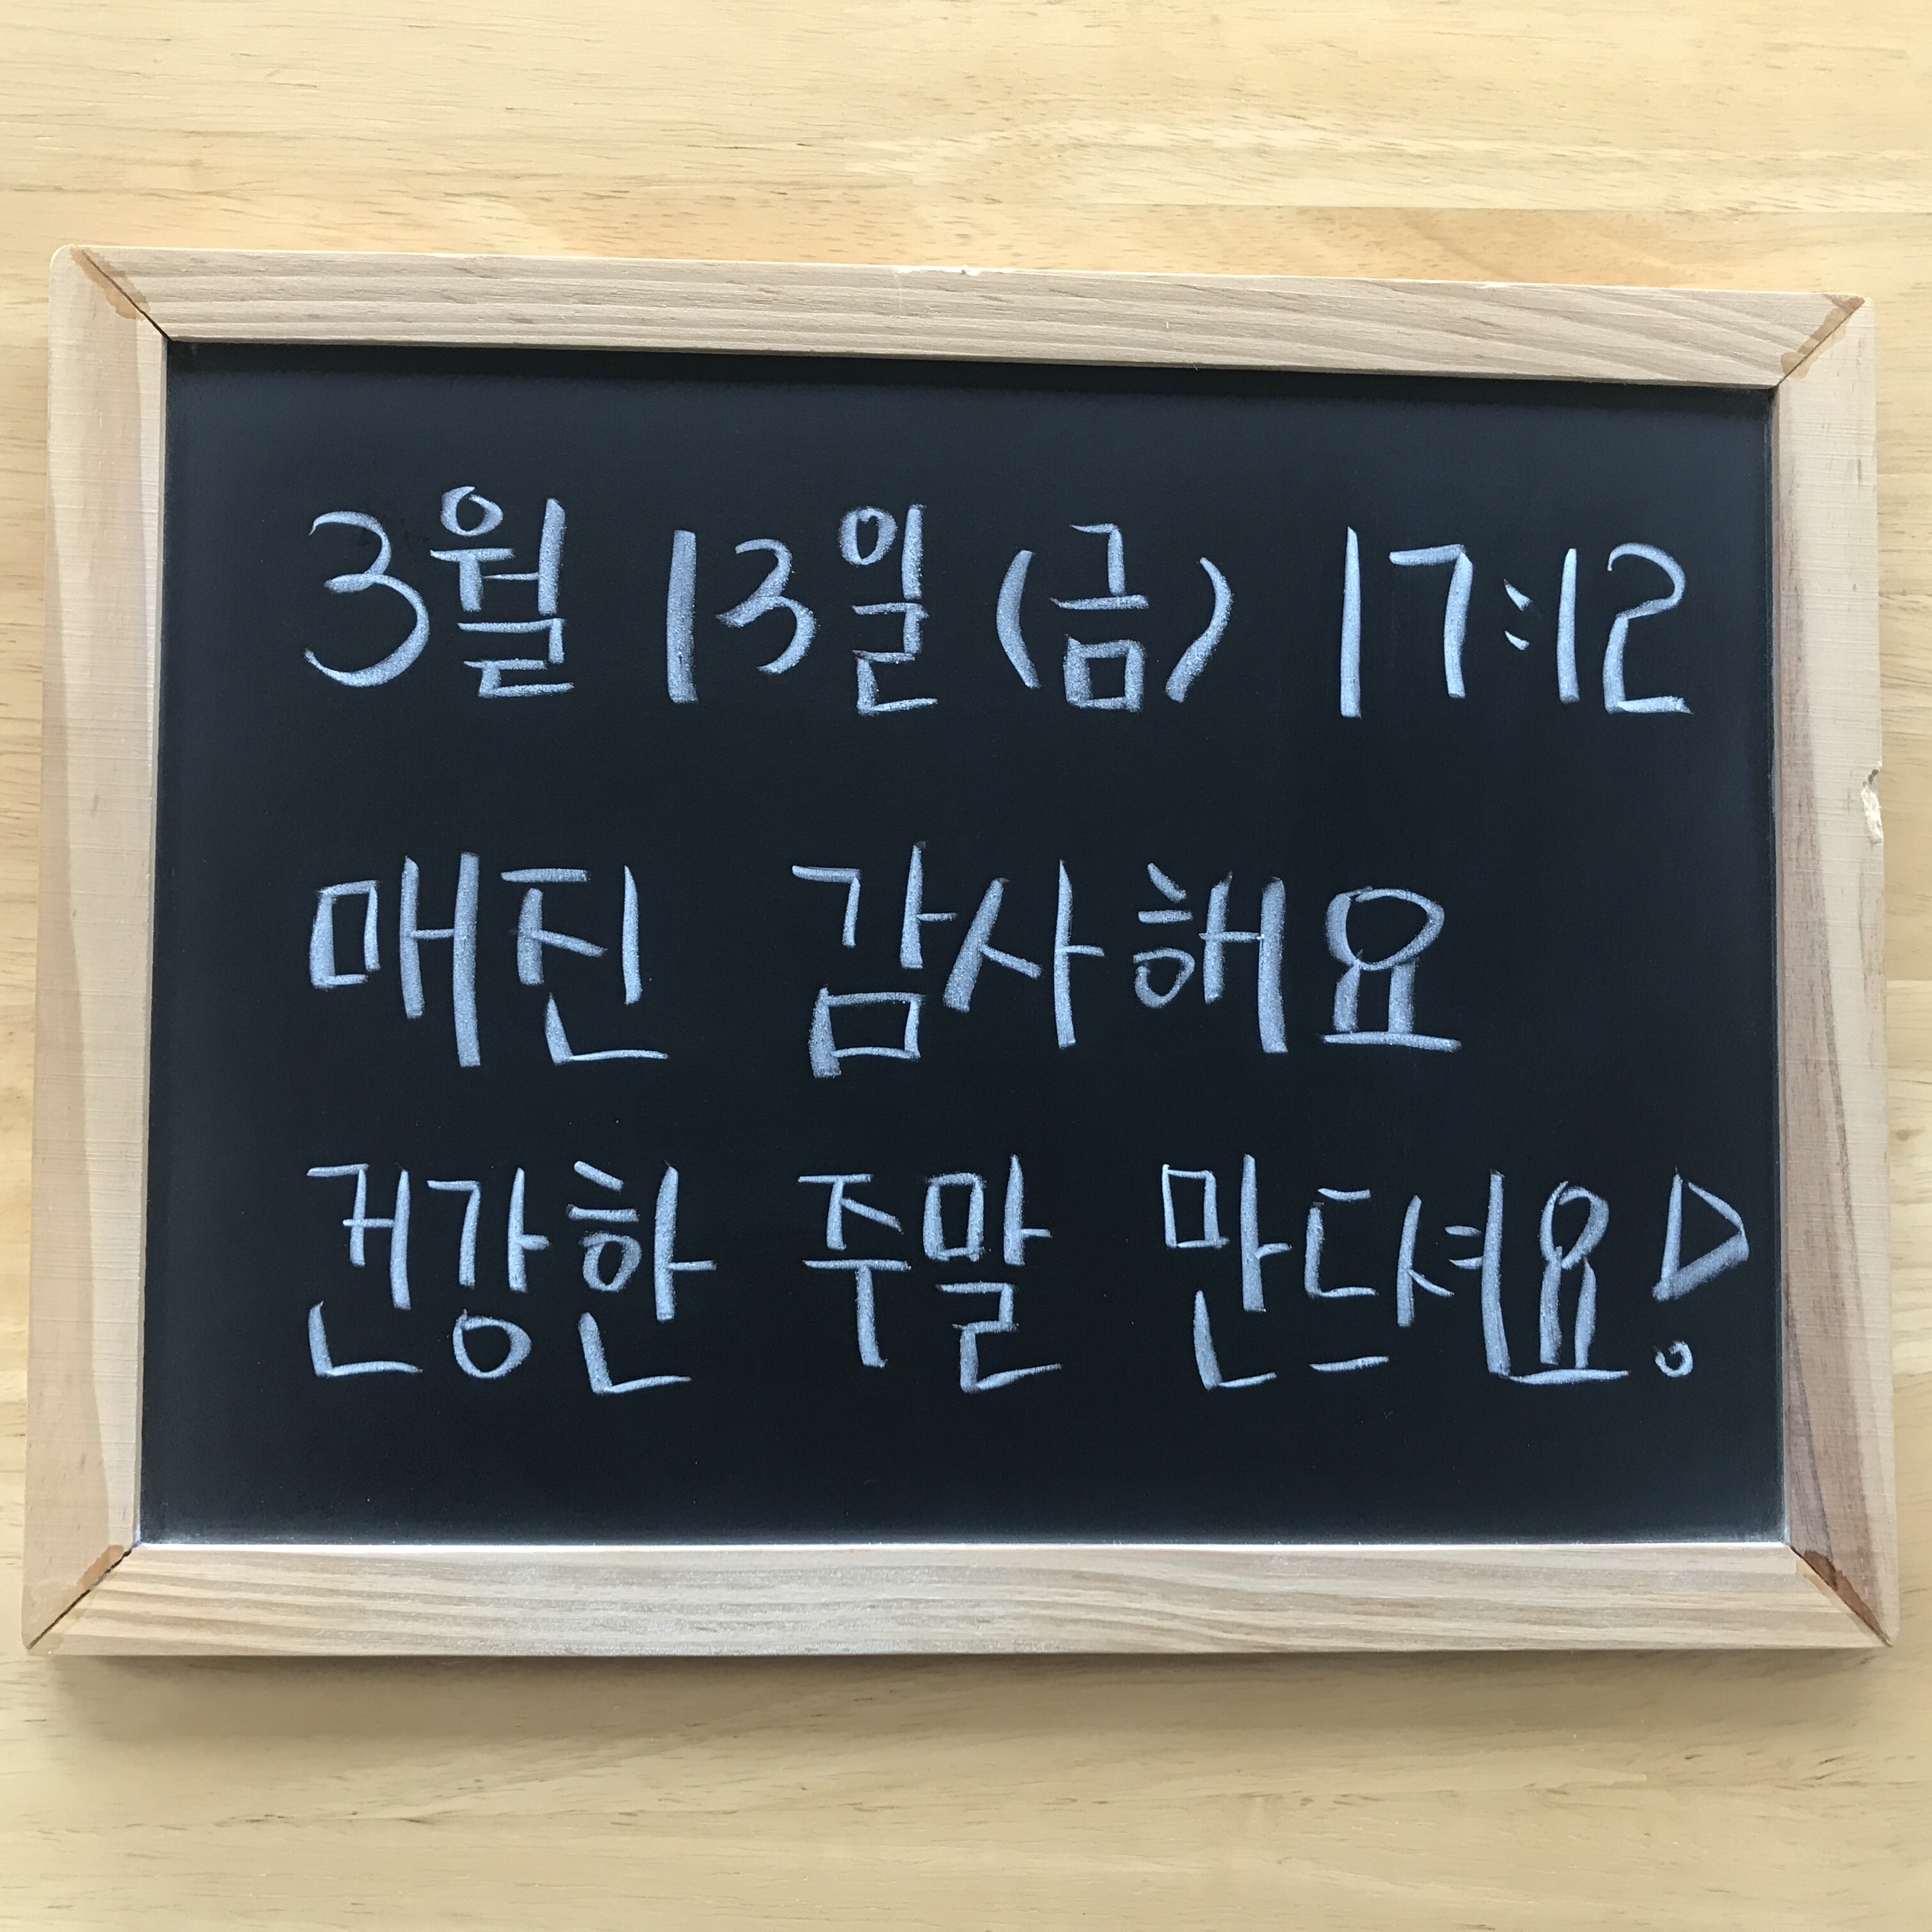 3월 13일 (금) 17:12
매진 감사해요
건강한 주말 만드셔요!